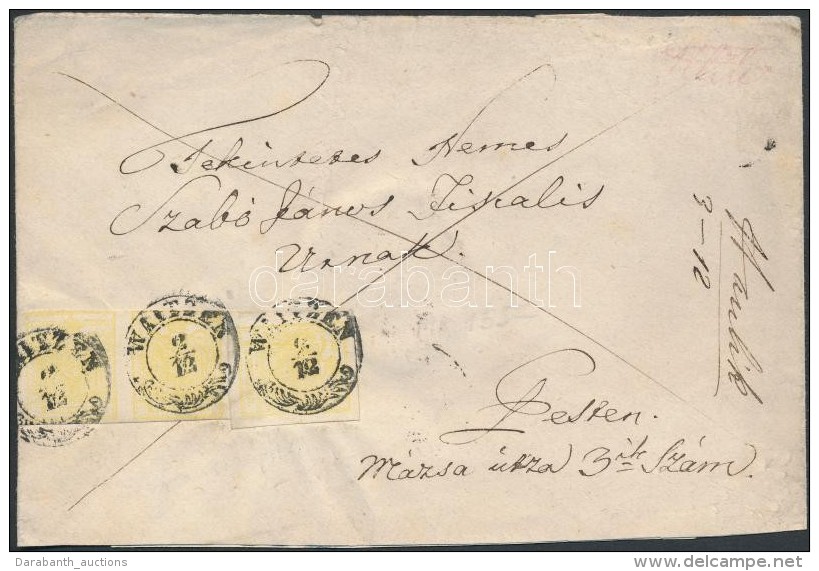 Tekintetes Nemes
Szabó János Fiskalis
Urnak.
darabanth
Haulik
3-12
WAITZEN
2/12
WAITZEN
2/12
WAITZEN
2/12
Pesten.
Mázsa útza 3ik Szám.
Darabanth_auctions
delcampe.net